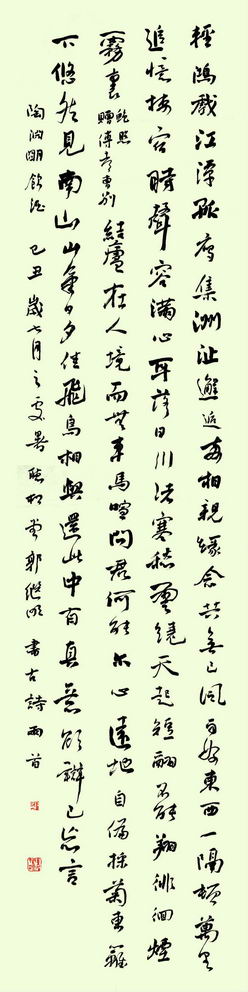 輕鴻戲江潭孤雁集洲沚邂逅兩相親緣念共無已風雨好東西一隔頓萬里
追憶栖宿時聲容滿心耳落日川渚寒愁雲繞天起短翮不能翔徘徊煙
霧裏 鮑照贈傅都曹別 結廬在人境而無車馬喧問君何能爾心遠地自偏採菊東籬
下悠然見南山山氣日夕佳飛鳥相與還此中有真意欲辯已忘言
陶淵明飲酒 己丑歲七月之處暑 郭繼明書古詩兩首